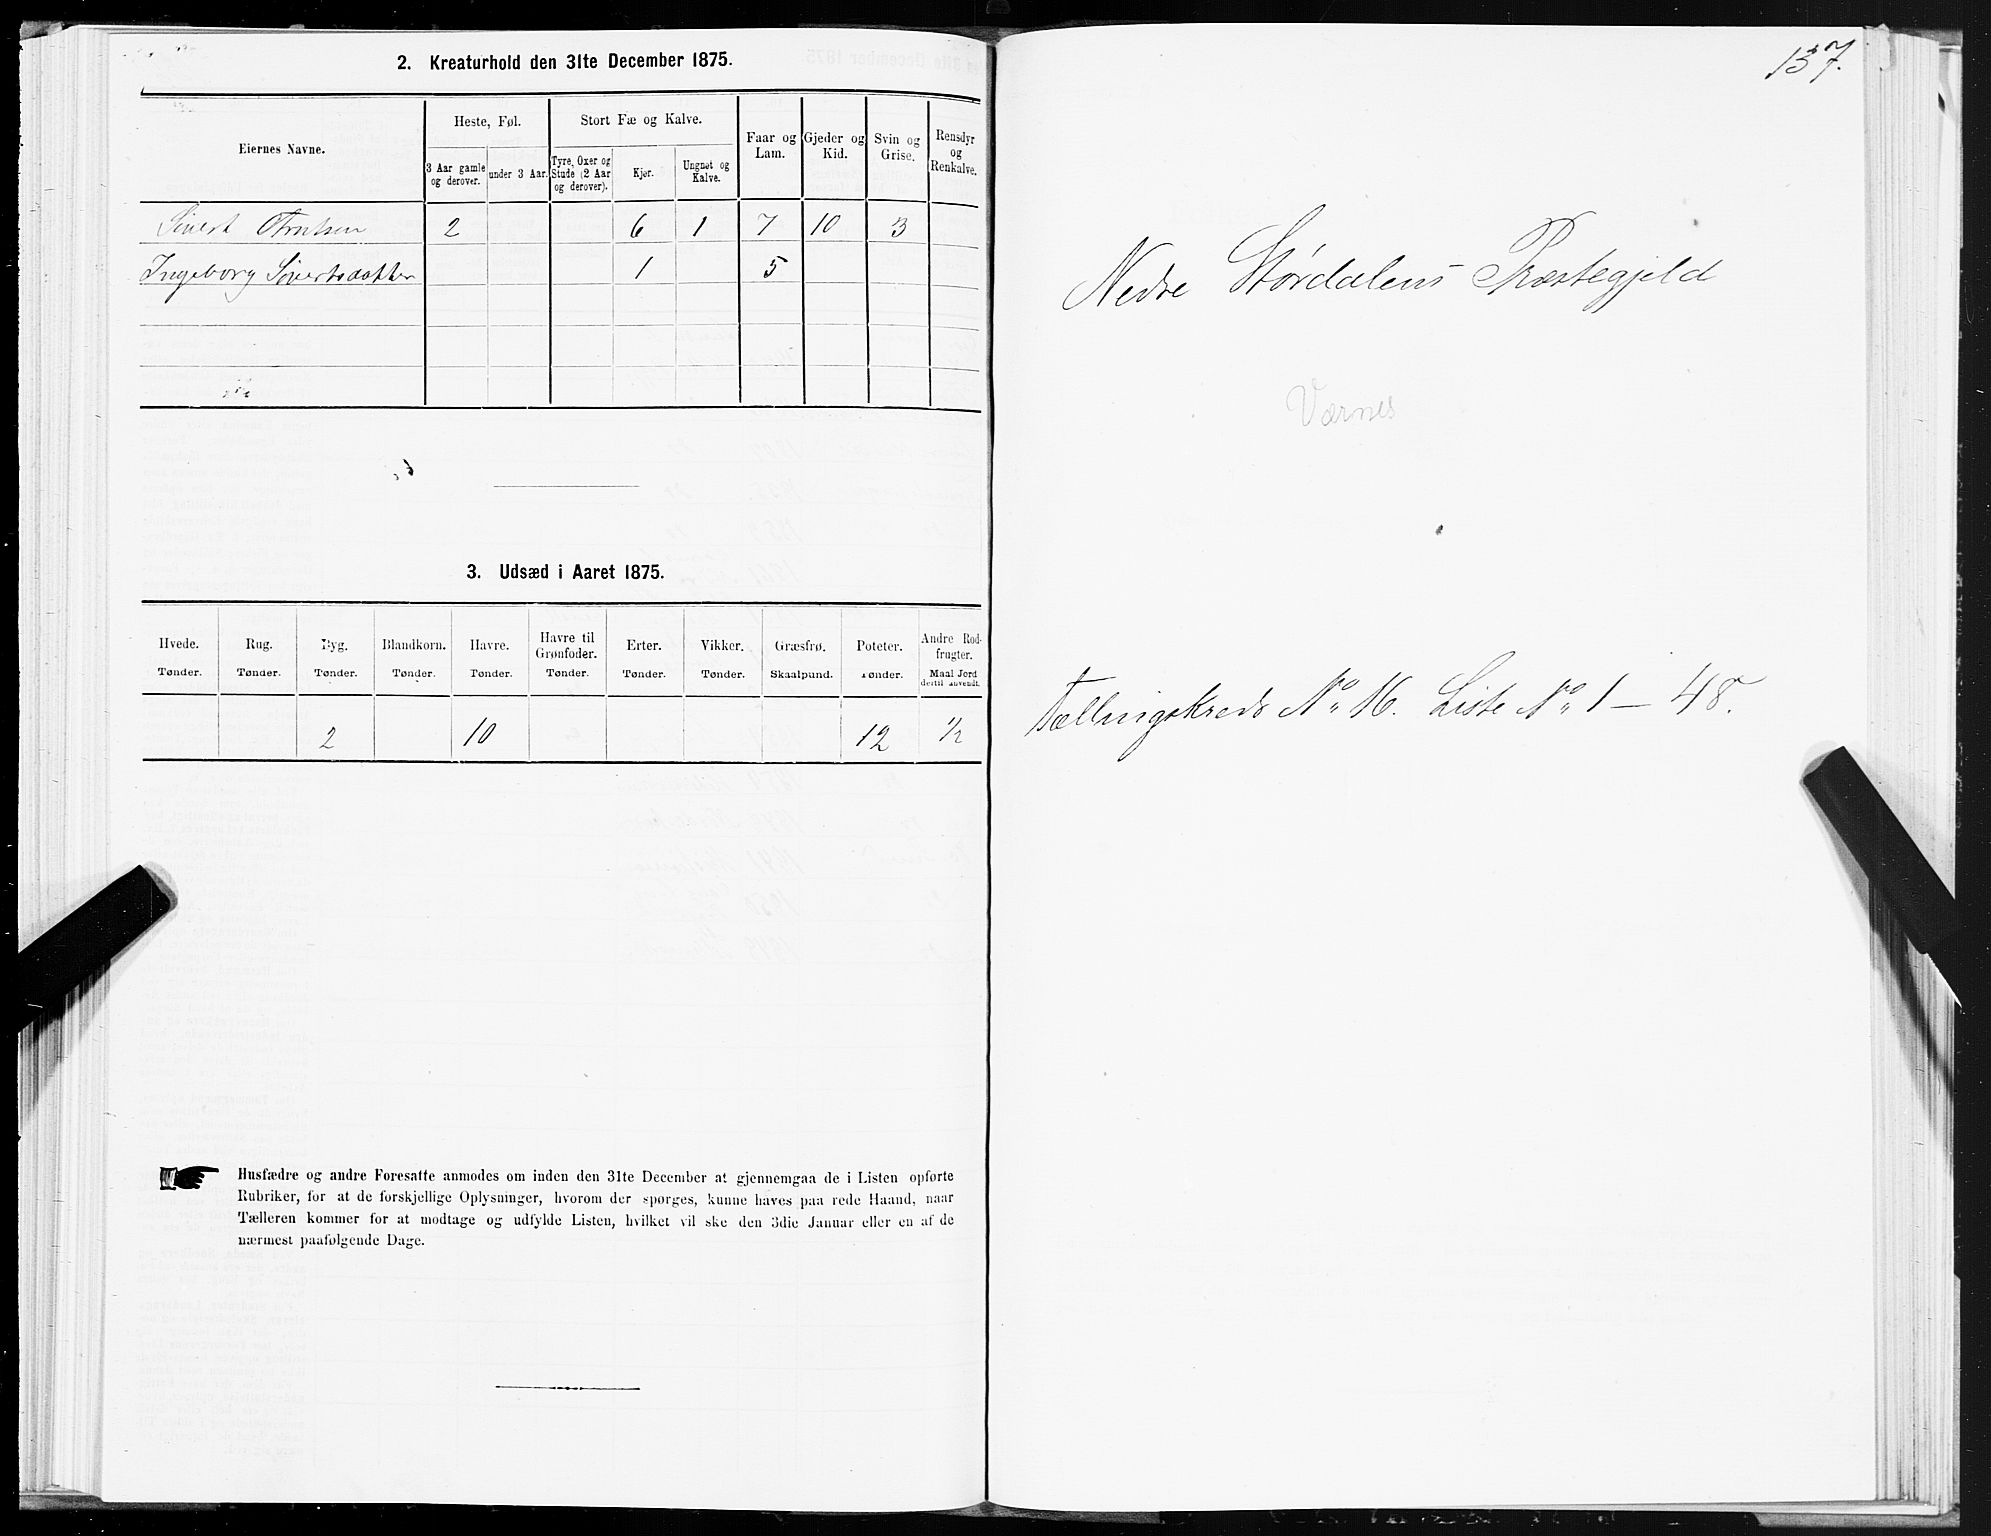 2. Kreaturhold den 31te December 1875.
Eiernes Navne.
Heste, Føl.
Stort Fæ og Kalve.
Faar og Lam.
Gjeder og Kid.
Svin og Grise.
Rensdyr og Renkalve.
3 Aar gamle og derover.
under 3 Aar.
Tyre, Oxer og Stude (2 Aar og derover).
Kjør.
Ungnøt og Kalve.
Sivert 2 6 1 7 10 3
Ingeborg Sivertsdatter 1 5
3. Udsæd i Aaret 1875.
Hvede. Rug. Byg. Blandkorn. Havre. Havre til Grønfoder. Erter. Vikker. Græsfrø. Poteter. Andre Rodfrugter.
Tønder. Tønder. Tønder. Tønder. Tønder. Tønder. Tønder. Tønder. Skaalpund. Tønder. Maal Jord dertil anvendt.
2 10 12 1/2
Husfædre og andre Foresatte anmodes om inden den 31te December at gjennemgaa de i Listen opførte
Rubriker, for at de forskjellige Oplysninger, hvorom der spørges, kunne haves paa rede Haand, naar
Tælleren kommer for at modtage og udfylde Listen, hvilket vil ske den 3die Januar eller en af de
nærmest paafølgende Dage.
137.
Nedre Størdalens Præstegjeld
Værnes
Tællingskreds No. 16. Liste No. 1 – 48.